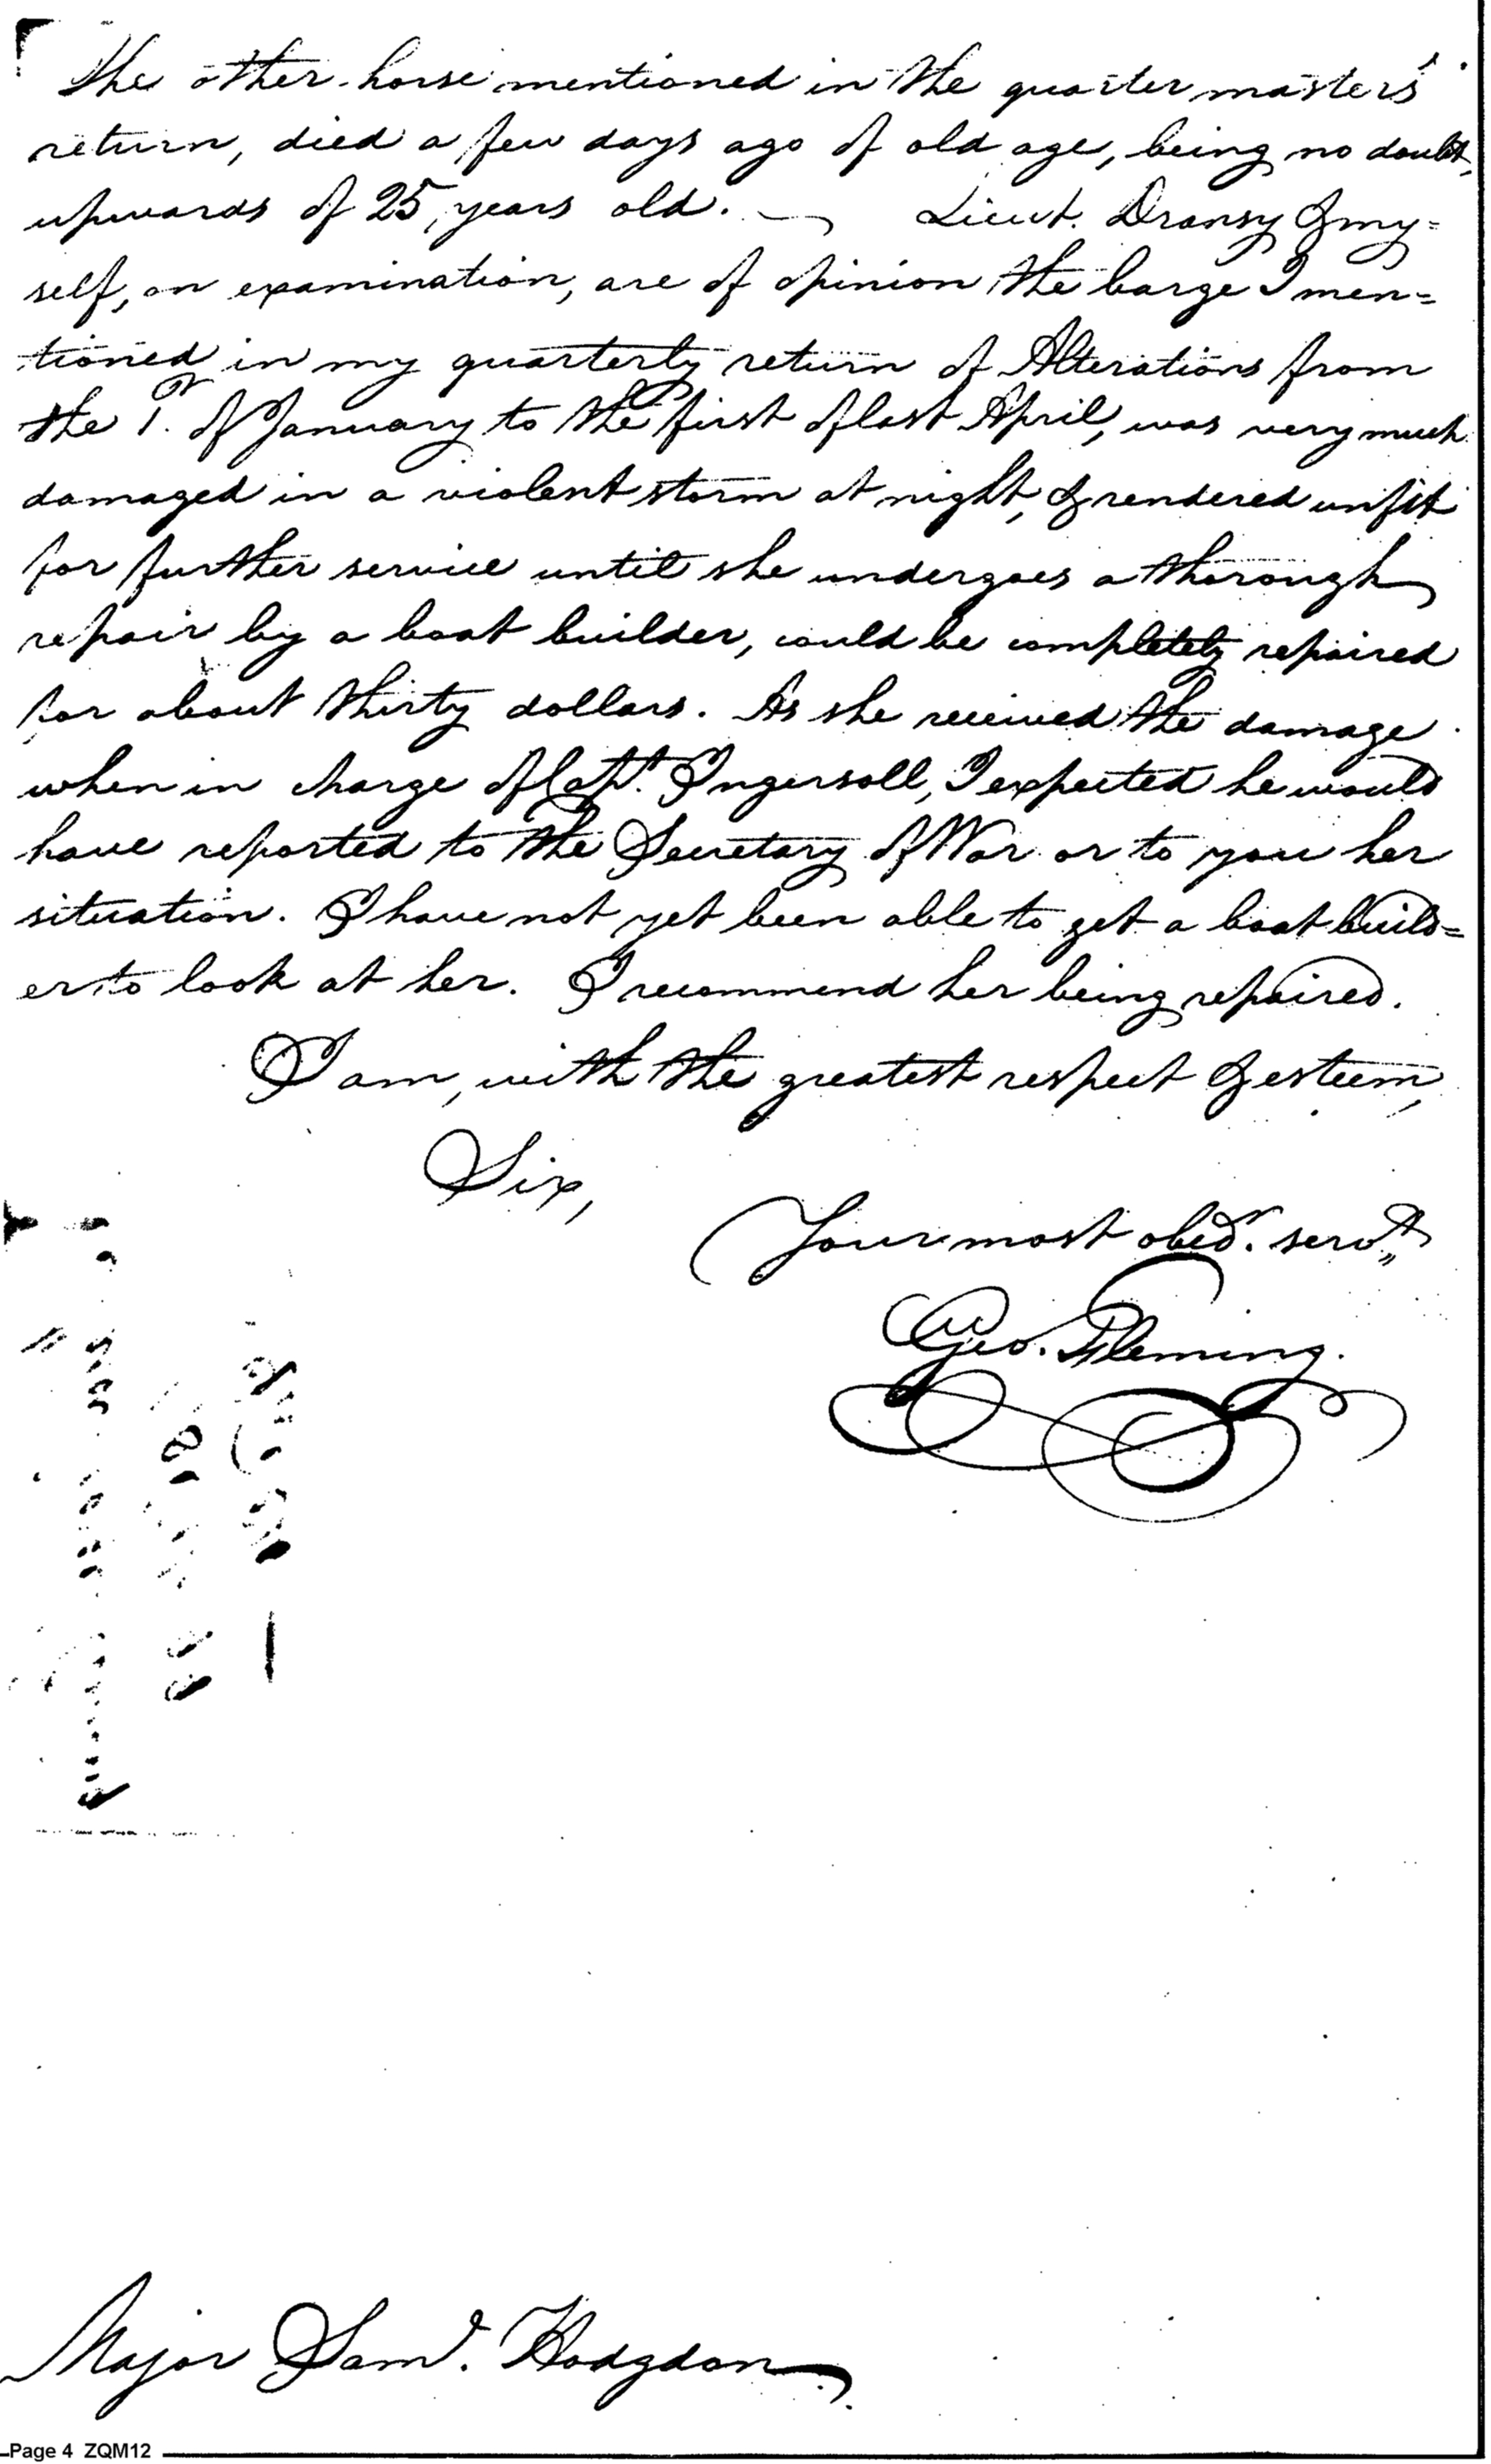 The other horse mentioned in the quarter master's
return, died a few days ago of old age, being no doubt,
upwards of 25, years old. — Lieut. Dransy & my=
self, on examination, are of opinion the barge I men=
tioned in my quarterly return of Alterations from
the 1st. of January to the first of last April, was very much
damaged in a violent storm at night, & rendered unfit
for further service until she undergoes a thorough
repair by a boat builder, could be completely repaired
for about thirty dollars. As she received the damage
when in charge of Capt. Ingersoll, I expected he would
have reported to the Secretary of War or to you her
situation. I have not yet been able to get a boat build=
er to look at her. I recommend her being repaired.
I am, with the greatest respect & esteem,
Sir,
Your most obedt. servt.
Geo. Fleming.
Major Saml. Hodgdon
Page 4 ZQM12